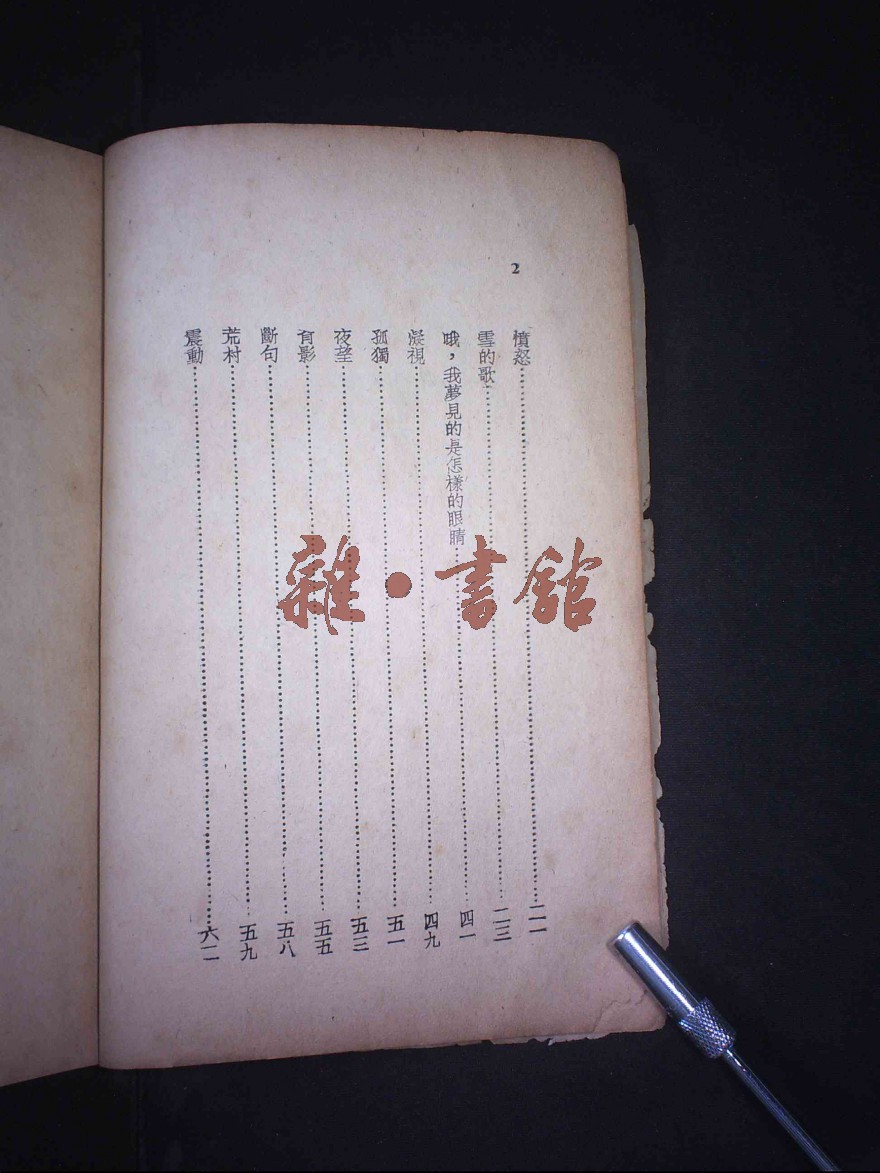 2
憤怒……二一
雪的歌……二三
哦，我夢見的是怎樣的眼睛……四一
凝視……四九
孤獨……五一
夜……五三
影……五五
斷句……五八
荒村……五九
震動……六二
雜•書館